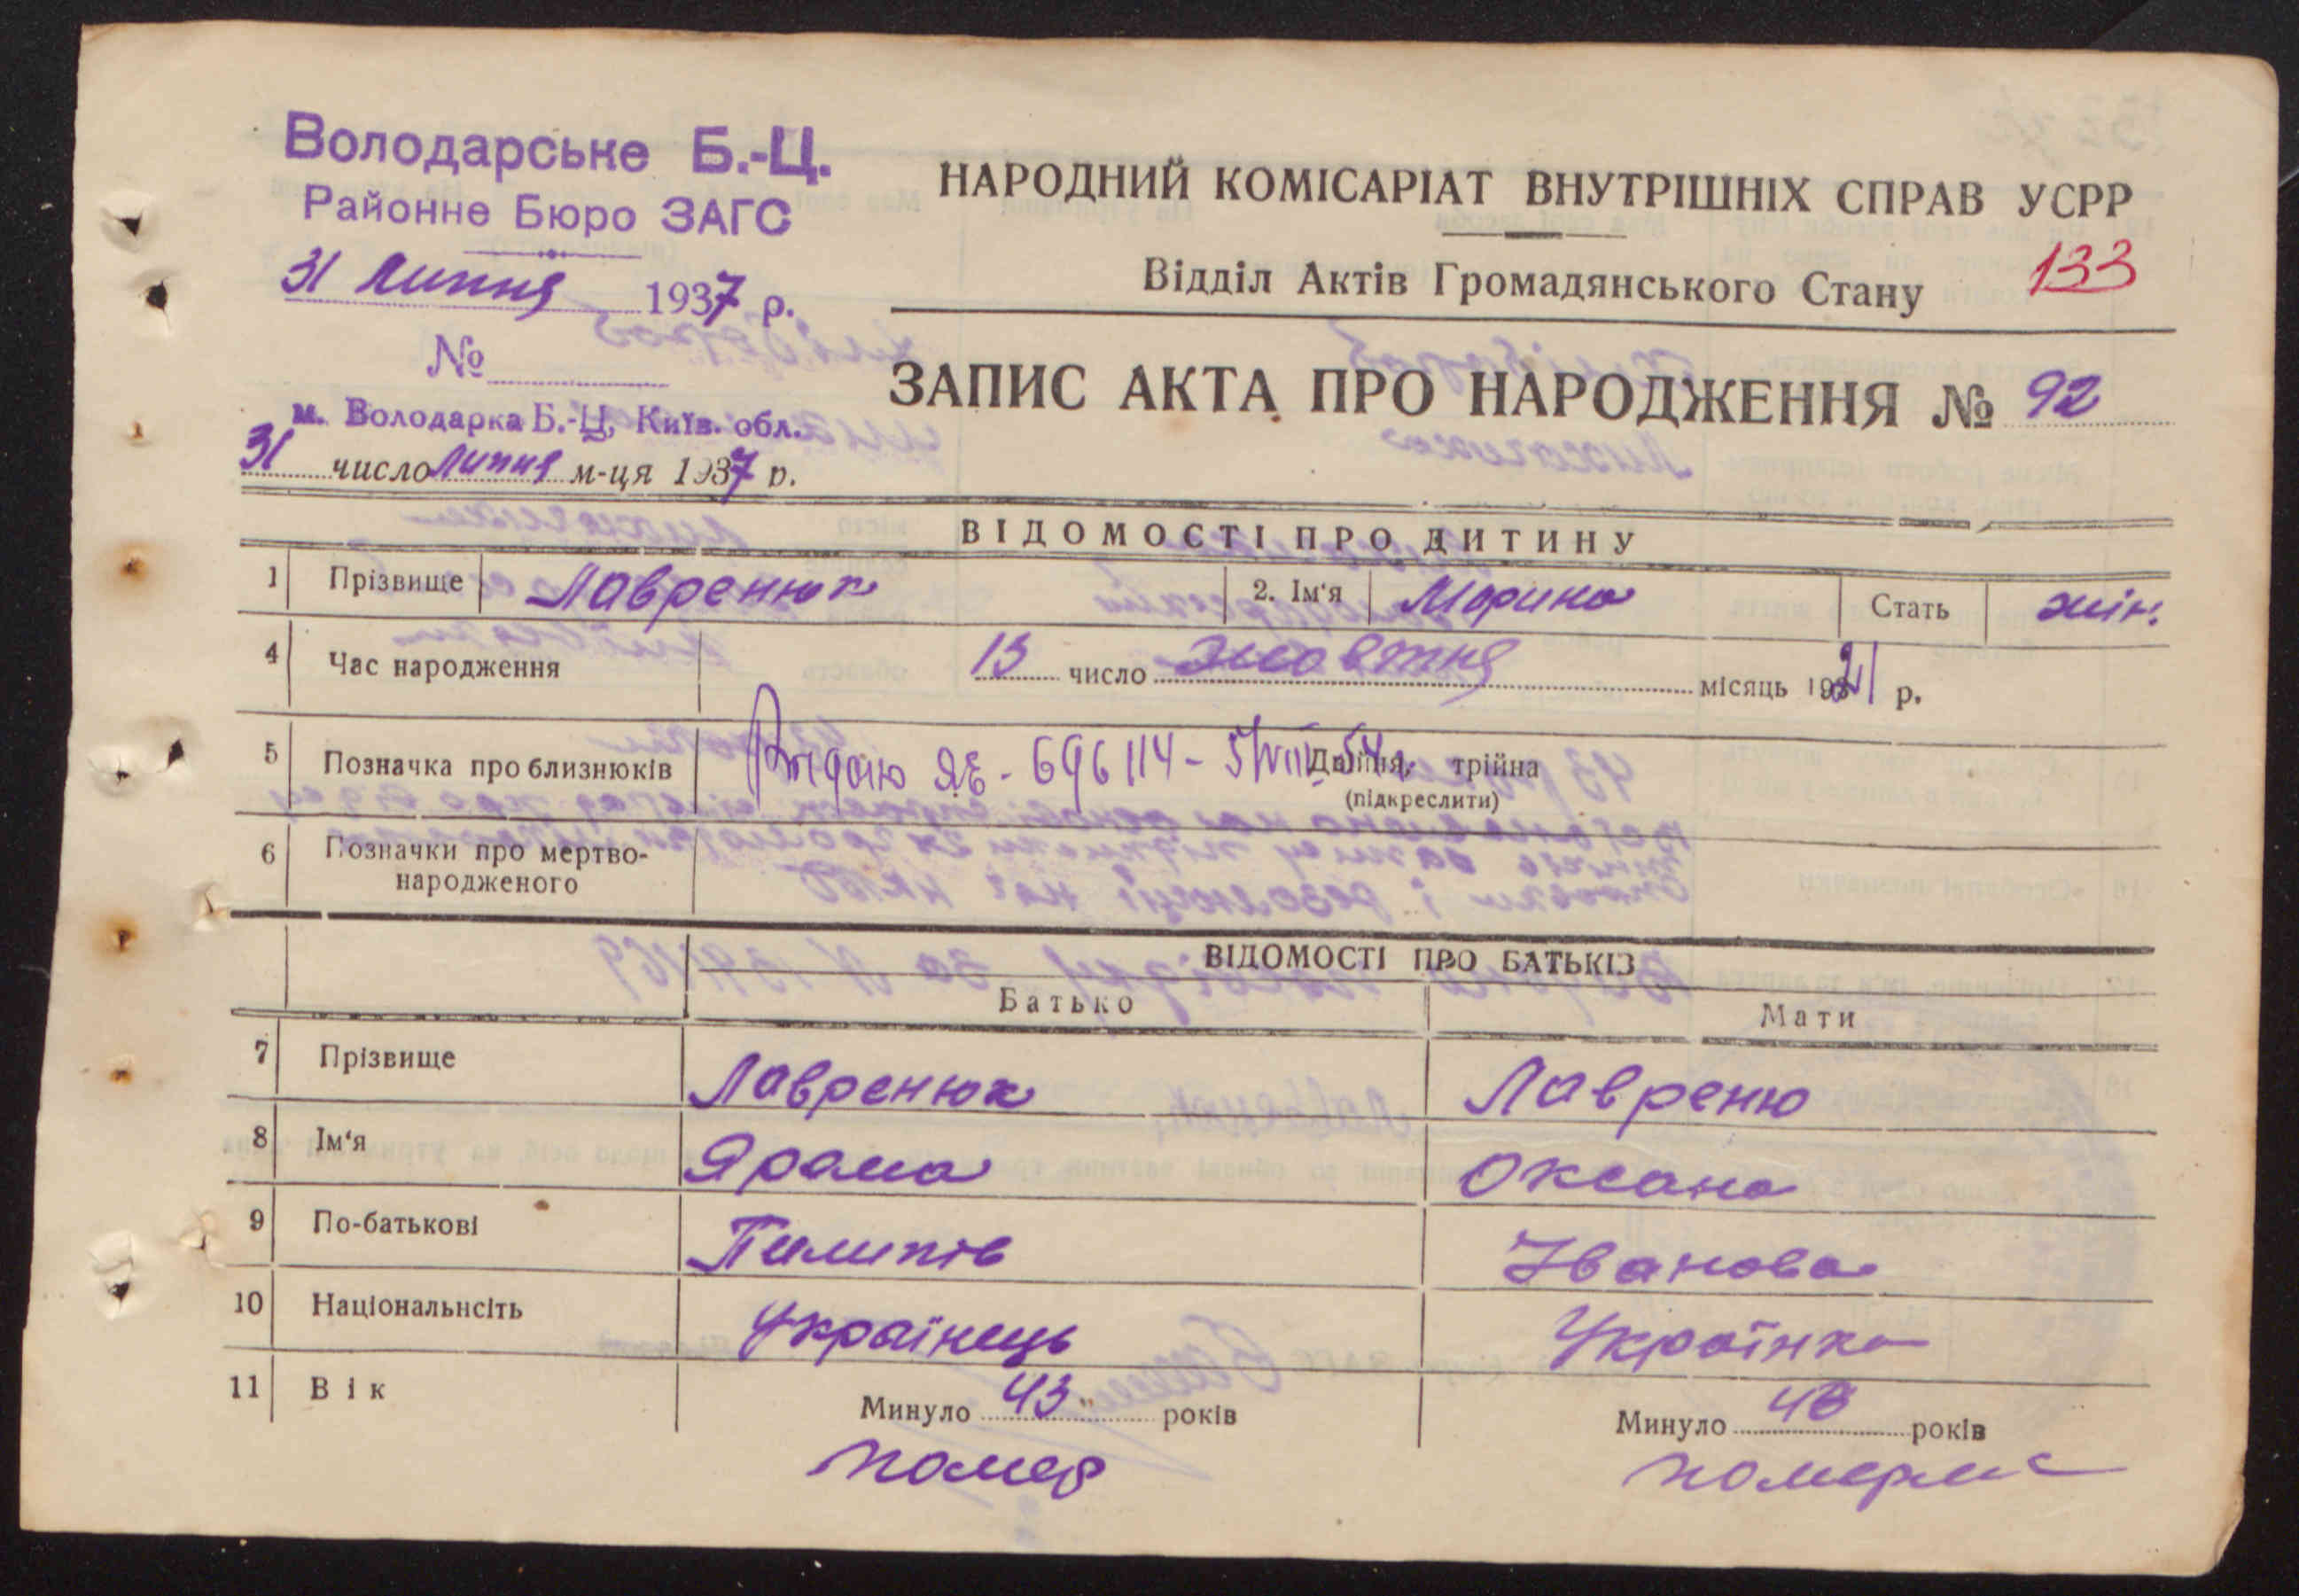 Володарське Б.-Ц.
Районне Бюро ЗАГС
31 Липня 1937 р.
№
м. Володарка Б.-Ц, Київ. обл.
31 число Липня м-ця 1937 р.
НАРОДНИЙ КОМІСАРІАТ ВНУТРІШНІХ СПРАВ УСРР
Відділ Актів Громадянського Стану 133
ЗАПИС АКТА ПРО НАРОДЖЕННЯ № 92
ВІДОМОСТІ ПРО ДИТИНУ
1 Прізвище Лавренюк 2. Ім'я Марина Стать жін.
4 Час народження 13 число жовтня місяць 1921 р.
5 Позначка про близнюків Видано ЯЕ - 696114 - 5/VIII 54 Двійня, трійна
(підкреслити)
6 Позначки про мертво-
народженого
ВІДОМОСТІ ПРО БАТЬКІВ
Батько Мати
7 Прізвище Лавренюк Лавреню
8 Ім'я Ярама Оксана
9 По-батькові Пилипів Іванова
10 Національнсіть Українець Українка
11 Вік Минуло 43 років Минуло 48 років
помер померла